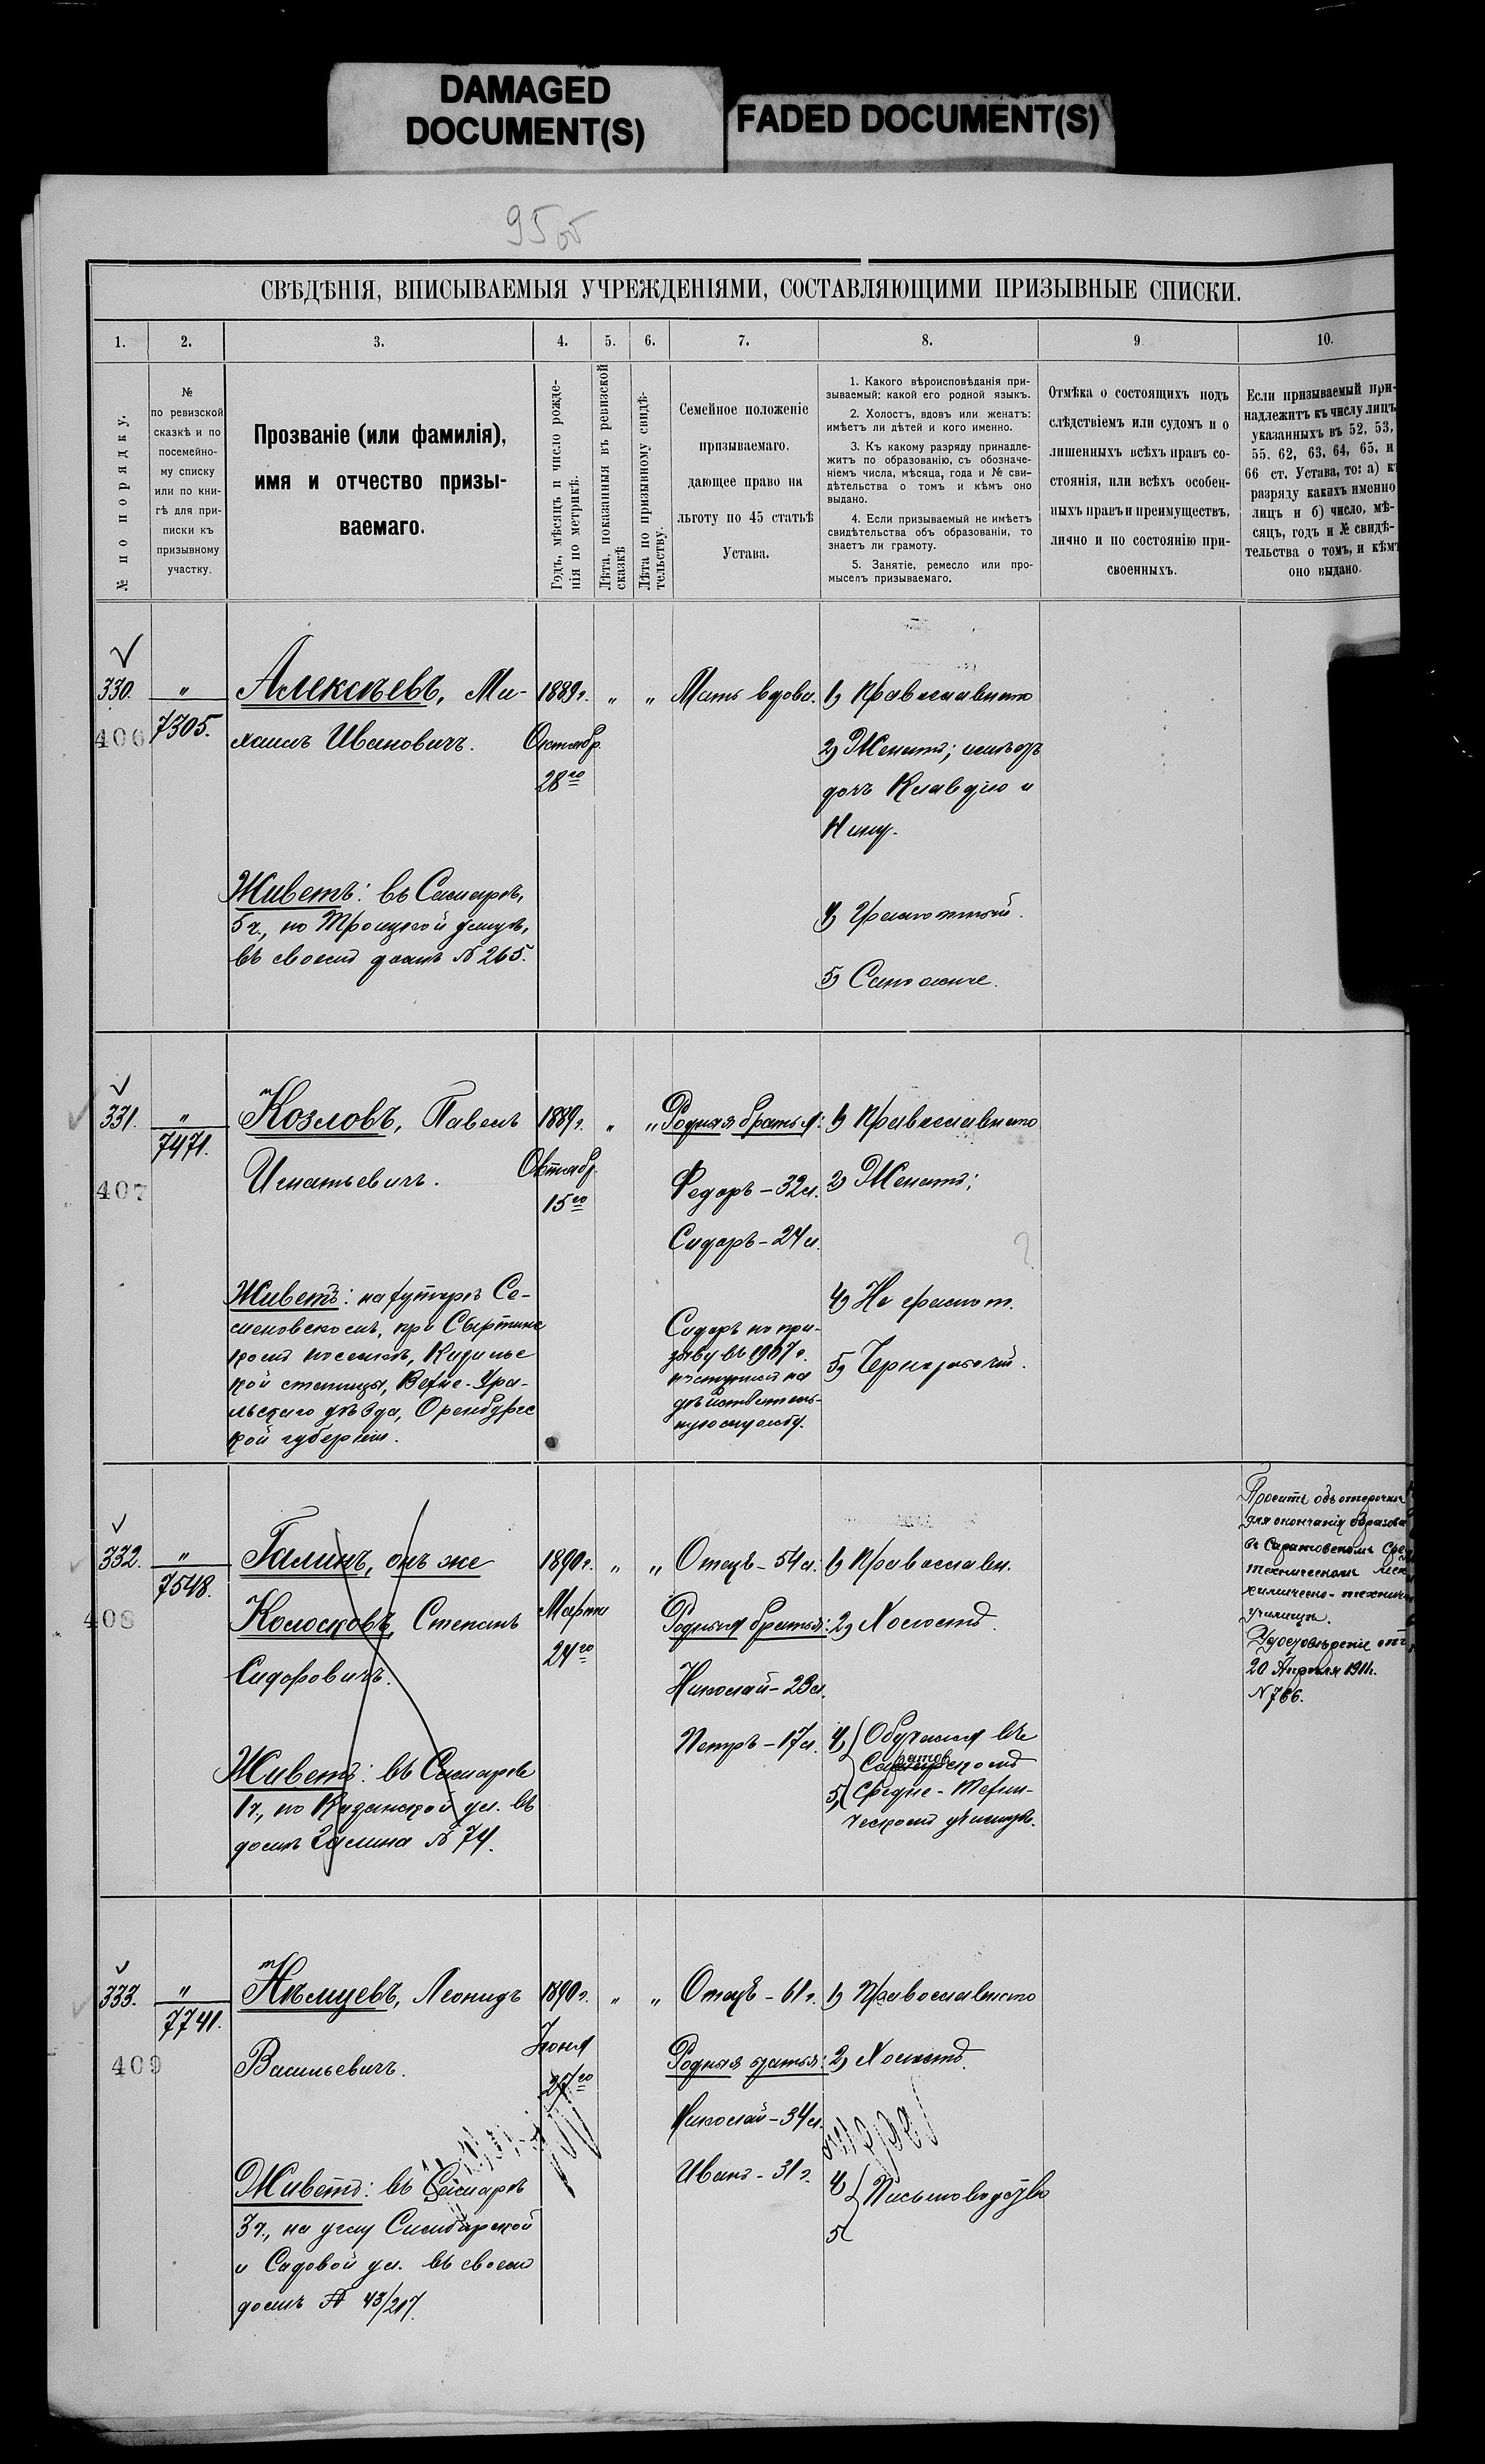 DAMAGED
DOCUMENT(S)
FADED DOCUMENT(S)
95 об
СВѢДѢНІЯ, ВПИСЫВАЕМЫЯ УЧРЕЖДЕНІЯМИ, СОСТАВЛЯЮЩИМИ ПРИЗЫВНЫЕ СПИСКИ.
1.
2.
3.
4.
5.
6.
7.
8.
9
10.
№ по порядку.
№
по ревизской
сказкѣ и по
посемейно-
му списку
или по кни-
гѣ для при-
писки къ
призывному
участку.
Прозваніе (или фамилія),
имя и отчество призы-
ваемаго.
Годъ, мѣсяцъ и число рожде-
нія по метрикѣ.
Лѣта, показанныя въ ревизской
сказкѣ
Лѣта по призывному свидѣ-
тельству.
Семейное положеніе
призываемаго,
дающее право на
льготу по 45 статьѣ
Устава.
1. Какого вѣроисповѣданія при-
зываемый: какой его родной языкъ.
2. Холостъ, вдовъ или женатъ:
имѣетъ ли дѣтей и кого именно.
3. Къ какому разряду принадле-
житъ по образованію, съ обозначе-
ніемъ числа, мѣсяца, года и № сви-
дѣтельства о томъ и кѣмъ оно
выдано.
4. Если призываемый не имѣетъ
свидѣтельства объ образованіи, то
знаетъ ли грамоту.
5. Занятіе, ремесло или про-
мыселъ призываемаго.
Отмѣка о состоящихъ подъ
слѣдствіемъ или судомъ и о
лишенныхъ всѣхъ правъ со-
стоянія, или всѣхъ особен-
ныхъ правъ и преимуществъ,
лично и по состоянію при-
своенныхъ.
Если призываемый при-
надлежитъ къ числу лицъ
указанныхъ въ 52, 53,
55, 62, 63, 64, 65, и
66 ст. Устава, то: а) къ
разряду какихъ именно
лицъ и б) число, мѣ-
сяцъ, годъ и № свидѣ-
тельства о томъ, и кѣмъ
оно выдано.
330.
406
"
7305.
Алексѣевъ, Ми-
хаилъ Ивановичъ.
Живетъ: въ Самарѣ,
5 ч., по Троицкой улицѣ,
въ своемъ домѣ № 265.
1889 г.
Октябр.
28го
"
"
Мать вдова.
1) Православнаго
2) Женатъ; имѣетъ
доч. Клавдію и
Нину.
4) Грамотный.
5)
331.
407
"
7471.
Козловъ, Павелъ
Игнатьевичъ.
Живетъ: на хуторѣ Се-
меновскомъ, при Сыртинс
комъ поселкѣ, Кизильс
кой станицы, Верхне-Ура-
льскаго уѣзда, Оренбургс
кой губерніи.
1889 г.
Октябр.
15го
"
"
Родныя братья:
Федоръ – 32 л.
Сидоръ – 24 л.
Сидоръ по при-
зыву въ 1907 г.
поступилъ на
дѣйствитель-
ную службу.
1) Православнаго
2) Женатъ;
4) Не грамот.
5) Чернорабочій.
332.
408
"
7548.
Галинъ, онъ же
Колосковъ, Степанъ
Сидоровичъ.
Живетъ: въ Самарѣ
1 ч., по Казанской ул. въ
домѣ Галина № 74.
1890 г.
Марта
24го
"
"
Отецъ – 54 л.
Родныя братья:
Николай – 23 л.
Петръ – 17 л.
1) Православн.
2) Холостъ.
4) Обучается въ
Саратовскомъ
5) Средне-Техни-
ческомъ училищѣ.
Проситъ объ отсрочкѣ
для окончанія образова
въ Саратовскомъ Сред
техническомъ
химическо-технич
училищѣ.
Удостовѣреніе отъ
20 Апрѣля 1911 г.
№ 766.
333.
409
"
7741.
Нѣмцевъ, Леонидъ
Васильевичъ.
Живетъ: въ Самарѣ
3 ч., на углу Симбирской
и Садовой ул. въ своемъ
домѣ № 43/217.
1890 г.
Іюня
27го
"
"
Отецъ – 61 г.
Родныя братья:
Николай – 34 л.
Иванъ – 31 г.
1) Православнаго
2) Холостъ.
4) Письмоводство
5